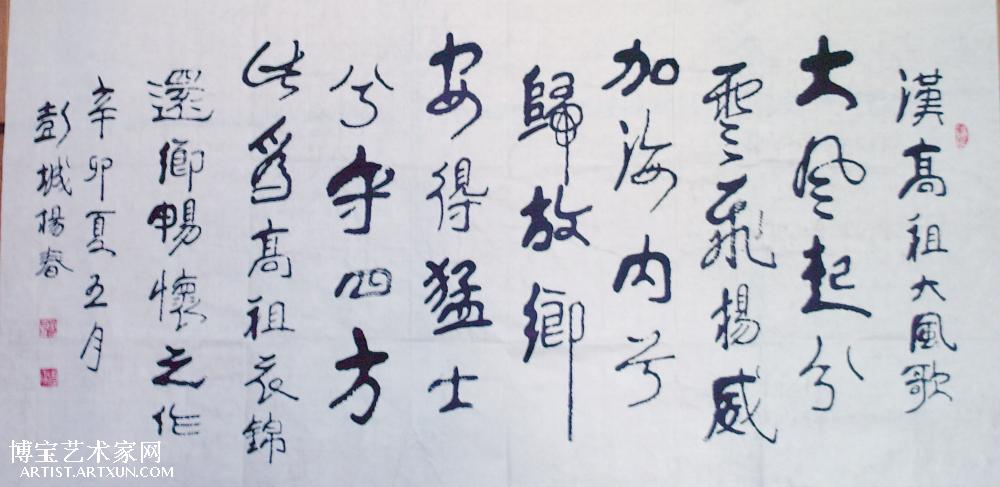 漢高祖大風歌
大風起兮
雲飛楊威
加海内兮
歸故鄉
安得猛士
兮守四方
此爲高祖衣錦
還鄉暢懷之作
辛卯夏五月
彭城楊春
博宝艺术家网
ARTIST.ARTXUN.COM